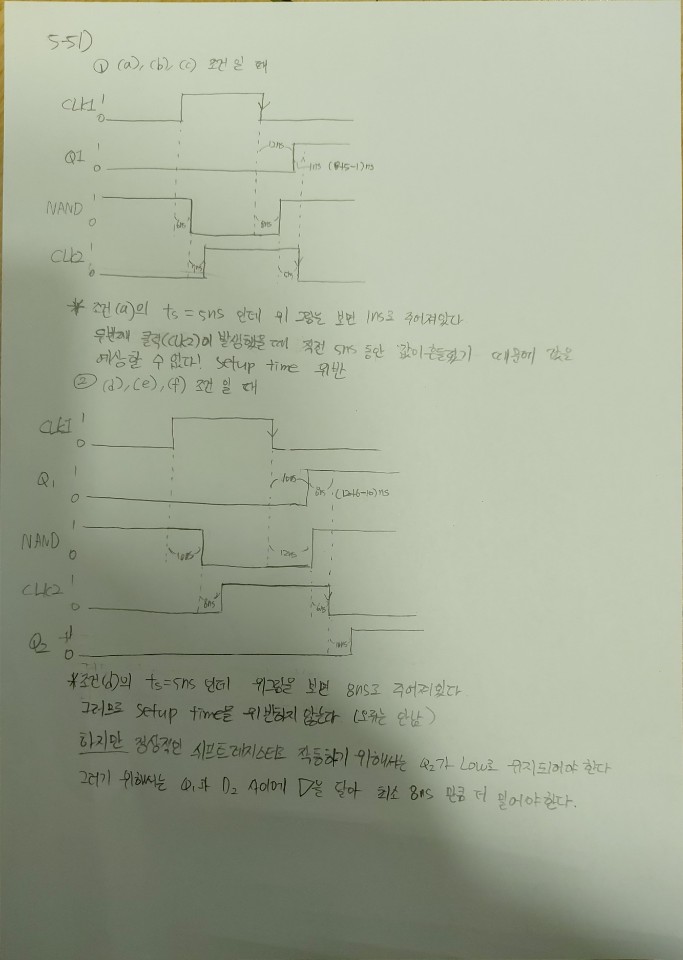 5-51)
① (a), (b), (c) 조건일 때
CLK1 1
0
Q1 1
0
12ns
1ns (8+5-1)ns
NAND 1
0
6ns
8ns
CLK2 1
0
7ns
5ns
* 조건(a)의 ts = 5ns 인데 위 그림을 보면 1ns로 주어져있다
두번째 클럭(CLK2)이 발생했을 때 직전 5ns 동안 값이 흔들렸기 때문에 값을
예상할 수 없다! setup time 위반
② (d), (e), (f) 조건일 때
CLK1 1
0
Q1 1
0
10ns
8ns (12+6-10)ns
NAND 1
0
10ns
12ns
CLK2 1
0
8ns
6ns
Q2 1
0
10ns
*조건(d)의 ts=5ns 인데 위그림을 보면 8ns로 주어져있다
그러므로 setup time을 위반하지 않는다 (오류는 안남)
하지만 정상적인 시프트레지스터로 작동하기 위해서는 Q2가 Low로 유지되어야 한다
그러기 위해서는 Q1과 D2 사이에 ▷을 달아 최소 8ns 만큼 더 밀어야한다.